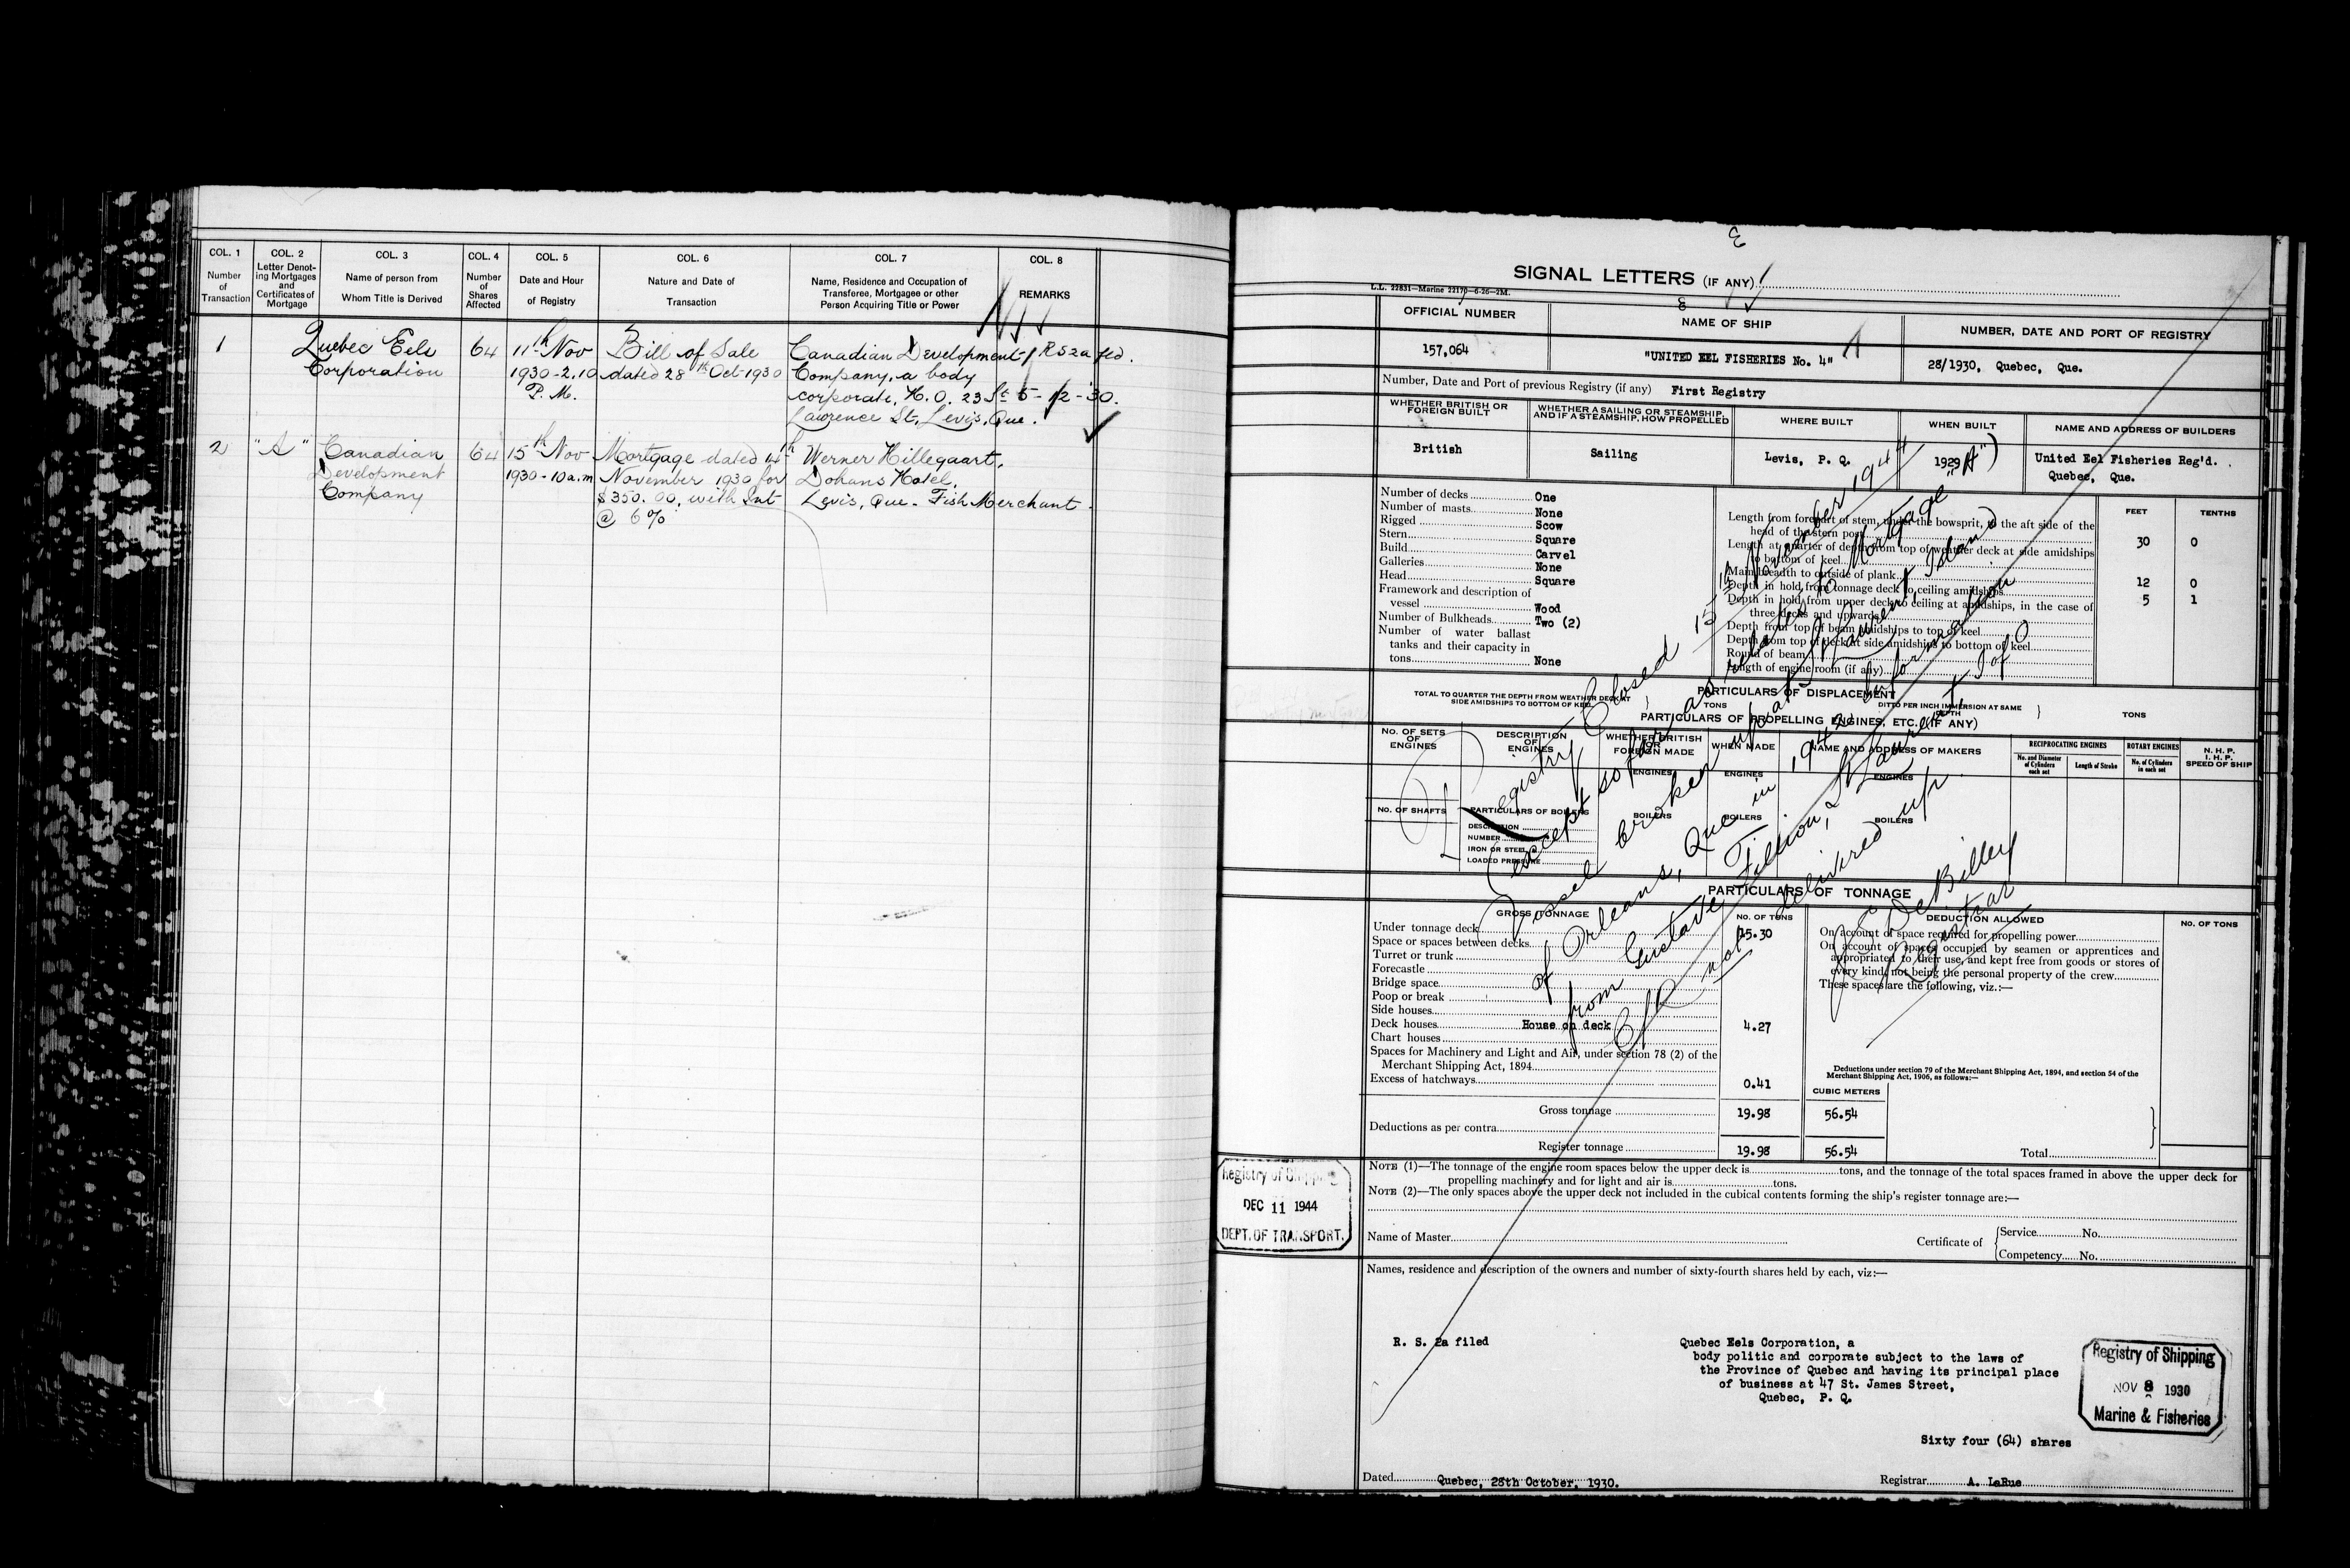 COL. 1
Number
of
Transaction
COL. 2
Letter Denot-
ing Mortgages
and
Certificates of
Mortgage
COL. 3
Name of person from
Whom Title is Derived
COL. 4
Number
of
Shares
Affected
COL. 5
Date and Hour
of Registry
COL. 6
Nature and Date of
Transaction
COL. 7
Name, Residence and Occupation of
Transferee, Mortgagee or other
Person Acquiring Title or Power
COL. 8
REMARKS
1
Quebec Eels
Corporation
64
11th Nov
1930-2.10
P.M.
Bill of Sale
dated 28th Oct 1930
Canadian Development
Company, a body
corporate, H.O. 23 St
Lawrence St, Levis, Que.
RS2a fld.
5-12-30.
2
"A"
Canadian
Development
Company
64
15th Nov
1930-10 a.m
Mortgage dated 14th
November 1930 for
$350.00, with Int
@ 6%
Werner Hillegaart,
Dohans Hotel,
Levis, Que. Fish Merchant.
SIGNAL LETTERS (IF ANY)
L.L. 22831—Marine 22170—6-26—2M.
OFFICIAL NUMBER
157,064
NAME OF SHIP
"UNITED EEL FISHERIES No. 4"
NUMBER, DATE AND PORT OF REGISTRY
28/1930, Quebec, Que.
Number, Date and Port of previous Registry (if any) First Registry
WHETHER BRITISH OR
FOREIGN BUILT
British
WHETHER A SAILING OR STEAMSHIP,
AND IF A STEAMSHIP, HOW PROPELLED
Sailing
WHERE BUILT
Levis, P. Q.
WHEN BUILT
1929
NAME AND ADDRESS OF BUILDERS
United Eel Fisheries Reg'd.
Quebec, Que.
Number of decks One
Number of masts None
Rigged Scow
Stern Square
Build Carvel
Galleries None
Head Square
Framework and description of
vessel Wood
Number of Bulkheads Two (2)
Number of water ballast
tanks and their capacity in
tons None
FEET TENTHS
Length from forepart of stem, under the bowsprit, to the aft side of the
head of the stern post 30 0
Length at quarter of depth from top of weather deck at side amidships
to bottom of keel
Main breadth to outside of plank 12 0
Depth in hold from tonnage deck to ceiling amidships 5 1
Depth in hold from upper deck to ceiling at amidships, in the case of
three decks and upwards
Depth from top of beam amidships to top of keel
Depth from top of deck at side amidships to bottom of keel
Round of beam
Length of engine room (if any)
PARTICULARS OF DISPLACEMENT
TOTAL TO QUARTER THE DEPTH FROM WEATHER DECK AT
SIDE AMIDSHIPS TO BOTTOM OF KEEL
TONS
DITTO PER INCH IMMERSION AT SAME
DEPTH
TONS
PARTICULARS OF PROPELLING ENGINES, ETC. (IF ANY)
NO. OF SETS
OF
ENGINES
DESCRIPTION
OF
ENGINES
WHETHER BRITISH
OR
FOREIGN MADE
WHEN MADE
NAME AND ADDRESS OF MAKERS
RECIPROCATING ENGINES
No. and Diameter
of Cylinders
each set
Length of Stroke
ROTARY ENGINES
No. of Cylinders
in each set
N. H. P.
I. H. P.
SPEED OF SHIP
ENGINES
ENGINES
ENGINES
NO. OF SHAFTS
PARTICULARS OF BOILERS
DESCRIPTION
NUMBER
IRON OR STEEL
LOADED PRESSURE
BOILERS
BOILERS
BOILERS
Registry Closed 15th November 1944
(except so far as relates to Mortgage "A")
Vessel broken up at St Laurent, Island
of Orleans, Que in 1942. Information
from Gustave Fillion, St Laurent I of O
C/R not delivered up.
DeBilley
Registrar
PARTICULARS OF TONNAGE
GROSS TONNAGE
NO. OF TONS
Under tonnage deck 15.30
Space or spaces between decks
Turret or trunk
Forecastle
Bridge space
Poop or break
Side houses
Deck houses House on deck 4.27
Chart houses
Spaces for Machinery and Light and Air, under section 78 (2) of the
Merchant Shipping Act, 1894
Excess of hatchways 0.41
CUBIC METERS
Gross tonnage 19.98 56.54
Deductions as per contra
Register tonnage 19.98 56.54
DEDUCTION ALLOWED
NO. OF TONS
On account of space required for propelling power
On account of spaces occupied by seamen or apprentices and
appropriated to their use, and kept free from goods or stores of
every kind, not being the personal property of the crew
These spaces are the following, viz.:—
Deductions under section 79 of the Merchant Shipping Act, 1894, and section 54 of the
Merchant Shipping Act, 1906, as follows:—
Total
NOTE (1)—The tonnage of the engine room spaces below the upper deck is tons, and the tonnage of the total spaces framed in above the upper deck for
propelling machinery and for light and air is tons.
NOTE (2)—The only spaces above the upper deck not included in the cubical contents forming the ship's register tonnage are:—
Registry of Shipping
DEC 11 1944
DEPT. OF TRANSPORT.
Name of Master
Certificate of
Service No.
Competency No.
Names, residence and description of the owners and number of sixty-fourth shares held by each, viz:—
R. S. 2a filed
Quebec Eels Corporation, a
body politic and corporate subject to the laws of
the Province of Quebec and having its principal place
of business at 47 St. James Street,
Quebec, P. Q.
Registry of Shipping
NOV 8 1930
Marine & Fisheries
Sixty four (64) shares
Dated Quebec, 28th October, 1930.
Registrar A. LaRue